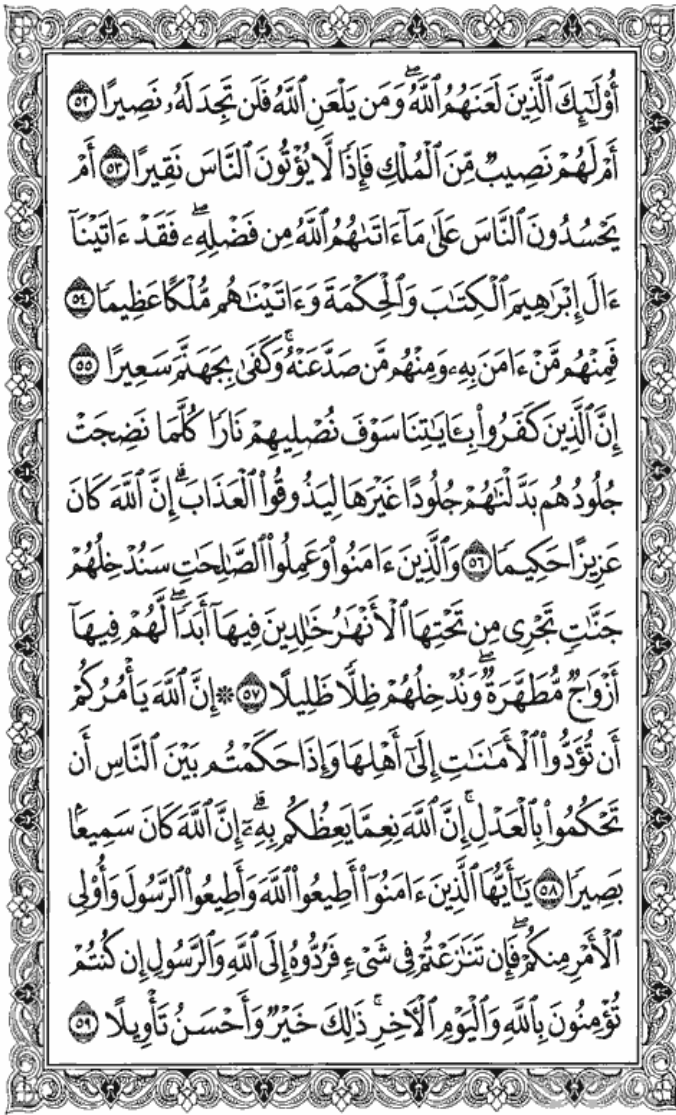 أُوْلَٰٓئِكَ ٱلَّذِينَ لَعَنَهُمُ ٱللَّهُۖ وَمَن يَلْعَنِ ٱللَّهُ فَلَن تَجِدَ لَهُۥ نَصِيرًا ٥٢
أَمْ لَهُمْ نَصِيبٌ مِّنَ ٱلْمُلْكِ فَإِذًا لَّا يُؤْتُونَ ٱلنَّاسَ نَقِيرًا ٥٣ أَمْ
يَحْسُدُونَ ٱلنَّاسَ عَلَىٰ مَآ ءَاتَىٰهُمُ ٱللَّهُ مِن فَضْلِهِۦۖ فَقَدْ ءَاتَيْنَآ
ءَالَ إِبْرَٰهِيمَ ٱلْكِتَٰبَ وَٱلْحِكْمَةَ وَءَاتَيْنَٰهُم مُّلْكًا عَظِيمًا ٥٤
فَمِنْهُم مَّنْ ءَامَنَ بِهِۦ وَمِنْهُم مَّن صَدَّ عَنْهُۚ وَكَفَىٰ بِجَهَنَّمَ سَعِيرًا ٥٥
إِنَّ ٱلَّذِينَ كَفَرُواْ بِـَٔايَٰتِنَا سَوْفَ نُصْلِيهِمْ نَارًا كُلَّمَا نَضِجَتْ
جُلُودُهُم بَدَّلْنَٰهُمْ جُلُودًا غَيْرَهَا لِيَذُوقُواْ ٱلْعَذَابَۗ إِنَّ ٱللَّهَ كَانَ
عَزِيزًا حَكِيمًا ٥٦ وَٱلَّذِينَ ءَامَنُواْ وَعَمِلُواْ ٱلصَّٰلِحَٰتِ سَنُدْخِلُهُمْ
جَنَّٰتٍ تَجْرِى مِن تَحْتِهَا ٱلْأَنْهَٰرُ خَٰلِدِينَ فِيهَآ أَبَدًاۖ لَّهُمْ فِيهَآ
أَزْوَٰجٌ مُّطَهَّرَةٌۖ وَنُدْخِلُهُمْ ظِلًّا ظَلِيلًا ٥٧ ۞ إِنَّ ٱللَّهَ يَأْمُرُكُمْ
أَن تُؤَدُّواْ ٱلْأَمَٰنَٰتِ إِلَىٰٓ أَهْلِهَا وَإِذَا حَكَمْتُم بَيْنَ ٱلنَّاسِ أَن
تَحْكُمُواْ بِٱلْعَدْلِۚ إِنَّ ٱللَّهَ نِعِمَّا يَعِظُكُم بِهِۦٓۗ إِنَّ ٱللَّهَ كَانَ سَمِيعًۢا
بَصِيرًا ٥٨ يَٰٓأَيُّهَا ٱلَّذِينَ ءَامَنُوٓاْ أَطِيعُواْ ٱللَّهَ وَأَطِيعُواْ ٱلرَّسُولَ وَأُوْلِى
ٱلْأَمْرِ مِنكُمْۖ فَإِن تَنَٰزَعْتُمْ فِى شَىْءٍ فَرُدُّوهُ إِلَى ٱللَّهِ وَٱلرَّسُولِ إِن كُنتُمْ
تُؤْمِنُونَ بِٱللَّهِ وَٱلْيَوْمِ ٱلْـَٔاخِرِۚ ذَٰلِكَ خَيْرٌ وَأَحْسَنُ تَأْوِيلًا ٥٩